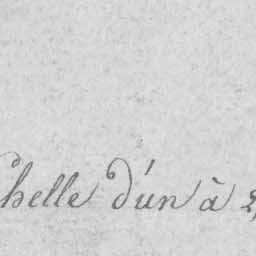 chelle d'un à